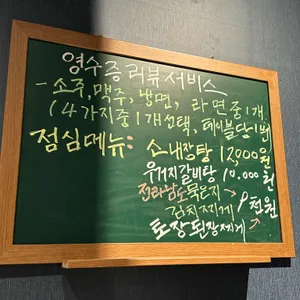 영수증 리뷰 서비스
- 소주, 맥주, 냉면, 라면 중 1개
(4가지중 1개 선택, 테이블당 1병)
점심메뉴: 소내장탕 12,000원
우거지갈비탕 10,000원
전라남도묵은지
김치찌게 → 9천원
토장된장찌게 →